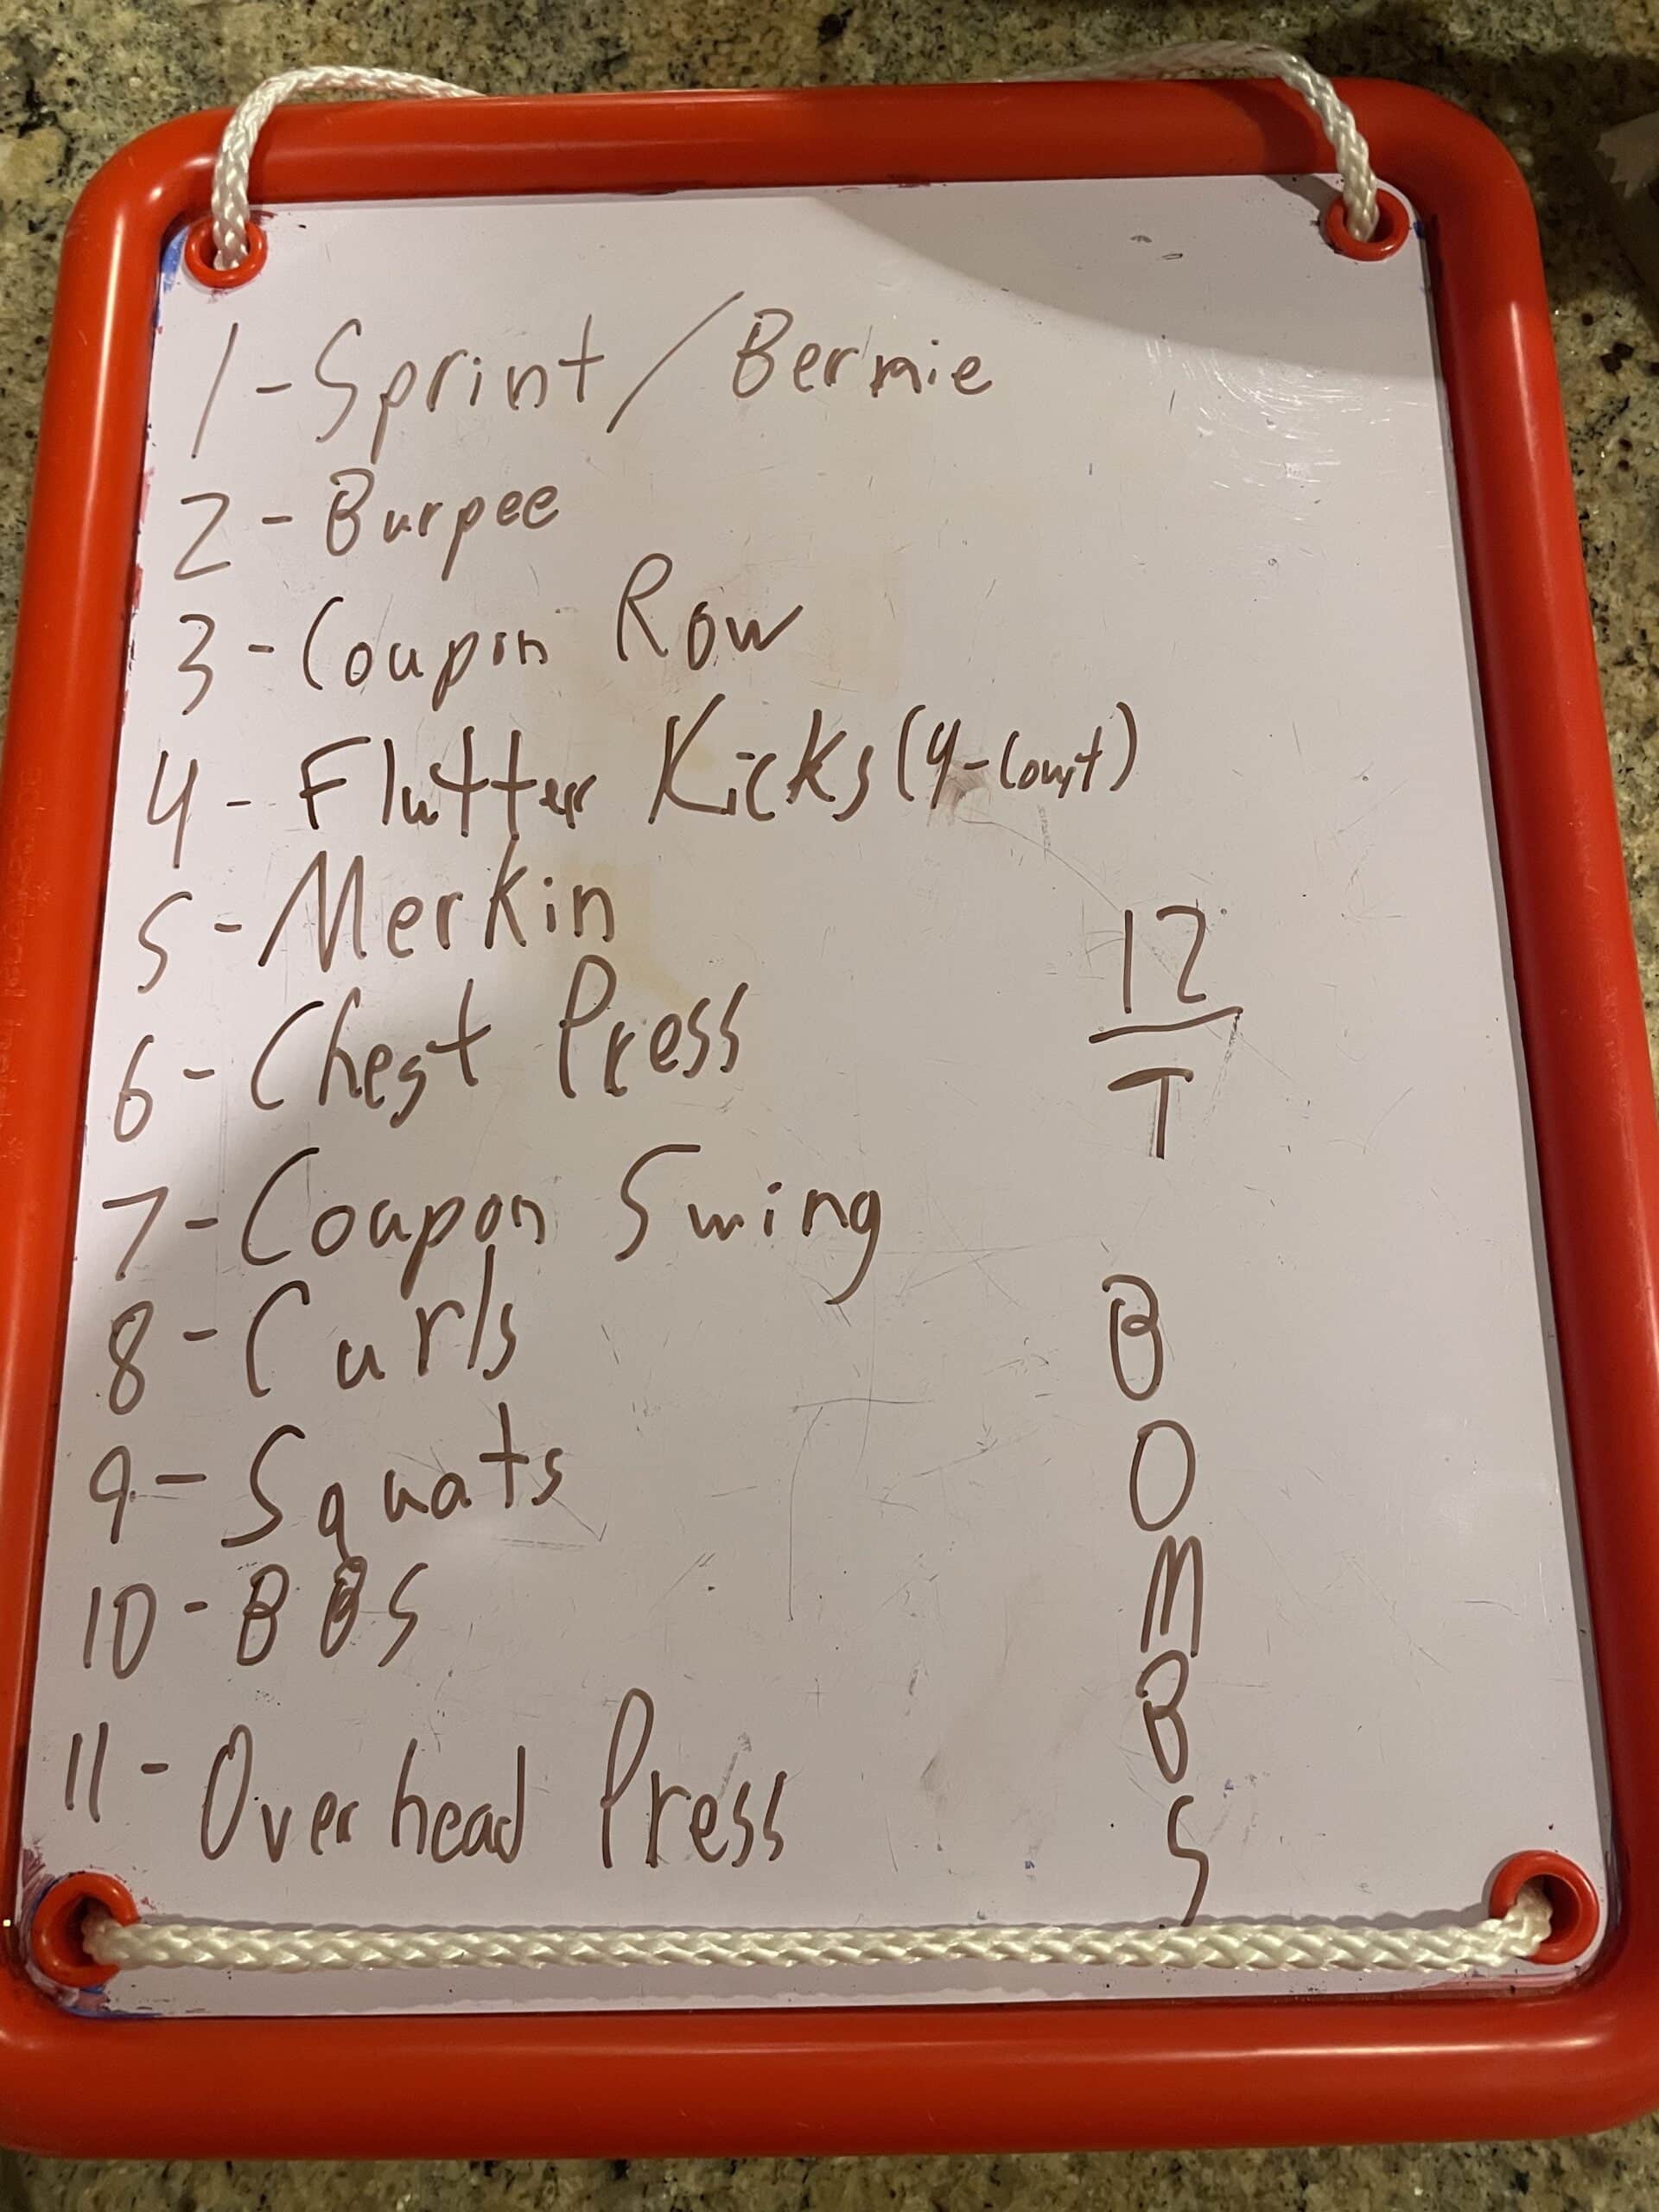 1 - Sprint / Bernie
2 - Burpee
3 - Coupon Row
4 - Flutter Kicks (4-Count)
5 - Merkin
6 - Chest Press
7 - Coupon Swing
8 - Curls
9 - Squats
10 - BBS
11 - Overhead Press
12
T
B
O
M
B
S